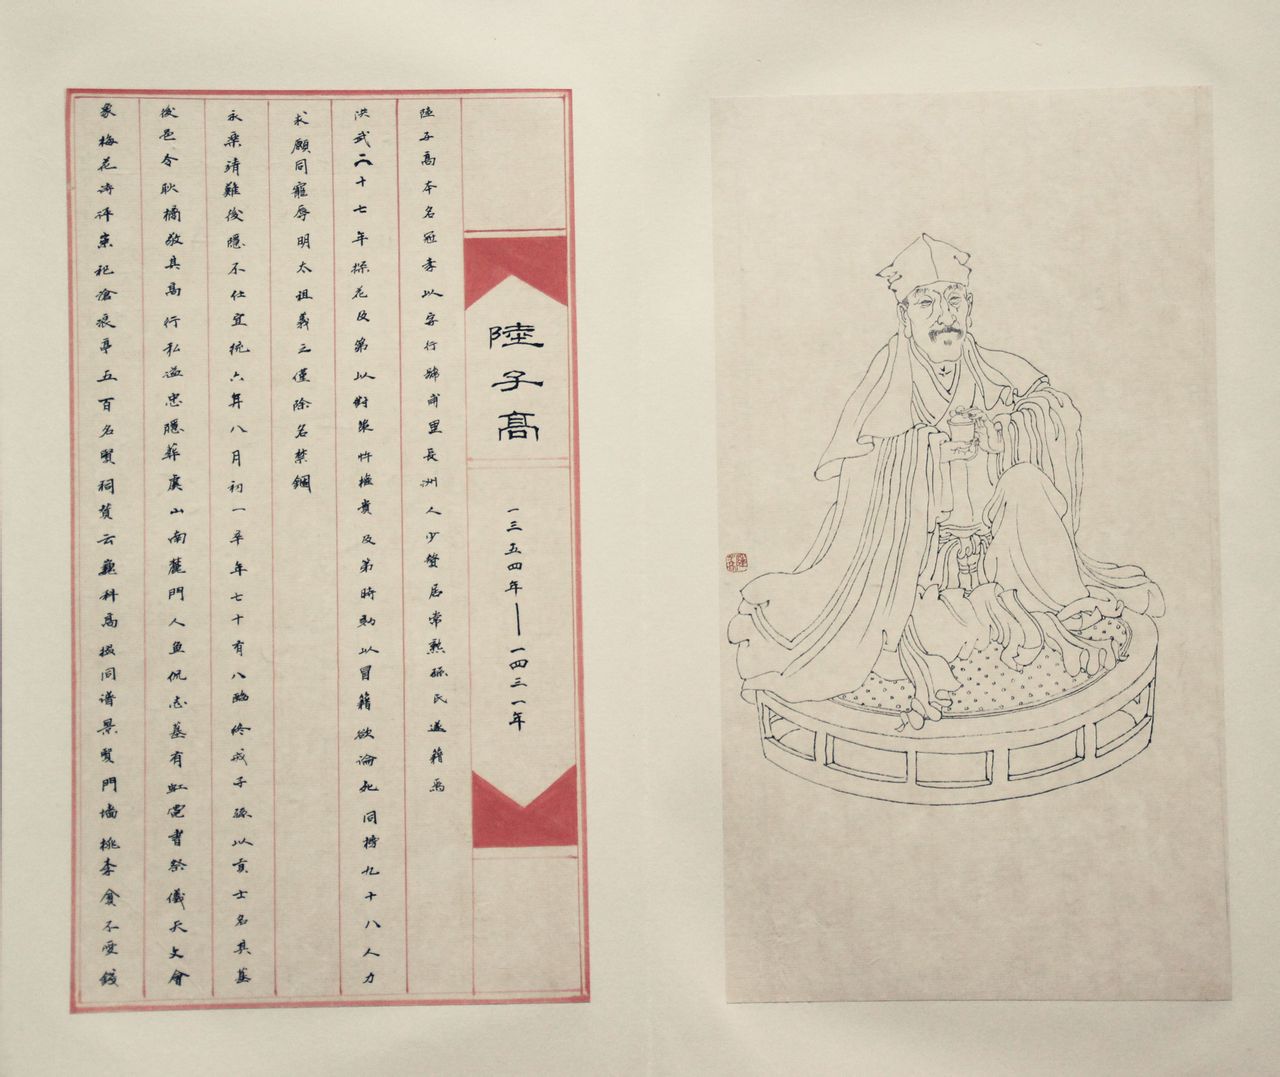 陸子高
一三五四年——一四三一年
陸子高本名冠孝以字行號甫里長洲人少贅居常熟孫氏遂籍焉
洪武二十七年探花及第以對策忤權貴及第時劾以冒籍欲論死同榜九十八人力
求願同寵辱明太祖義之僅除名禁錮
永樂靖難後隱不仕宣統六年八月初一卒年七十有八臨終戒子孫以貢士名其墓
後邑令耿橘敬其高行私謚忠隱葬虞山南麓門人魚侃志墓有虹霓書祭儀天文會
象梅花詩評崇祀滄浪亭五百名賢祠贊云巍科高掇同譜景賢門墻桃李貧不受錢